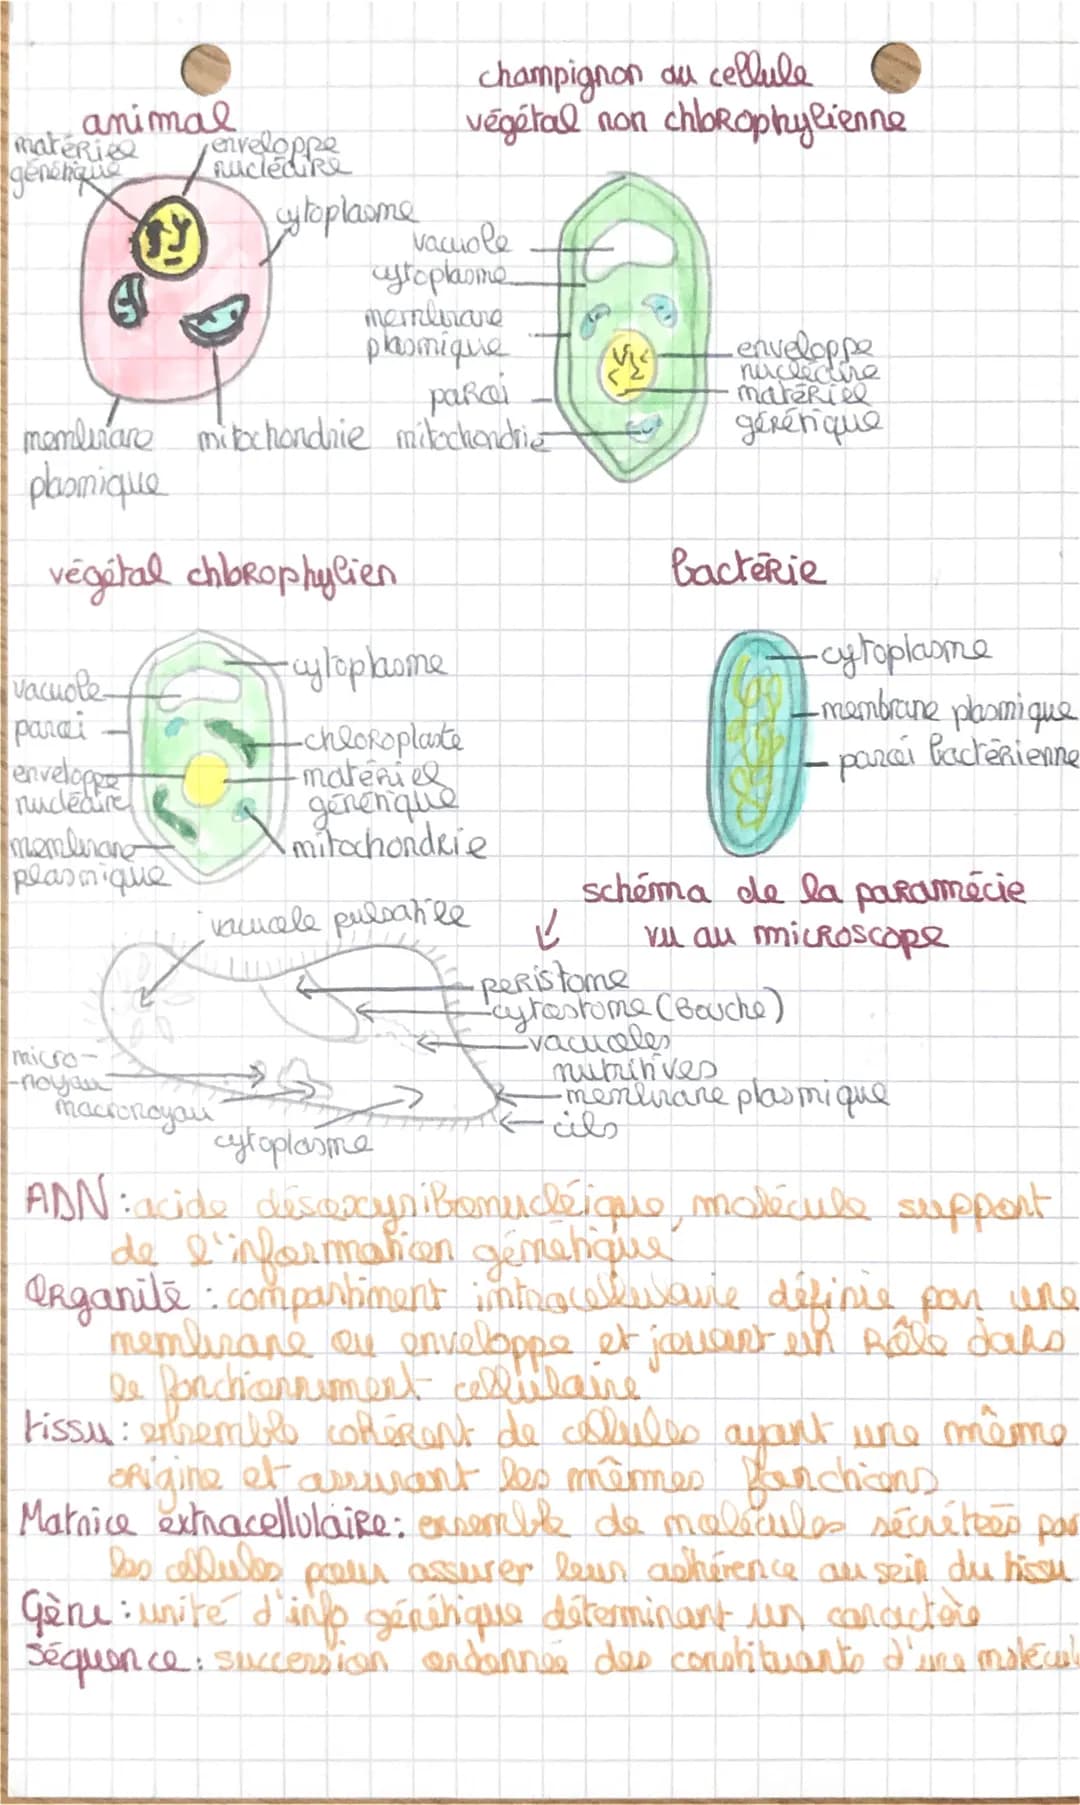 champignon ou cellule
végétal non chlorophylienne
animal
matériel
génétique
enveloppe
nucléaire
cytoplasme
membrane
plasmique
mitochondrie
vacuole
cytoplasme
membrane
plasmique
paroi
mitochondrie
enveloppe
nucléaire
matériel
génétique
végétal chlorophylien
vacuole
paroi
enveloppe
nucléaire
membrane
plasmique
cytoplasme
chloroplaste
matériel
génétique
mitochondrie
bactérie
cytoplasme
membrane plasmique
paroi bactérienne
schéma de la paramécie
vu au microscope
vacuole pulsatile
péristome
cytostome (Bouche)
vacuoles
nutritives
membrane plasmique
cils
micro-
-noyau
macronoyau
cytoplasme
ADN : acide désoxyribonucléique, molécule support
de l'information génétique
Organite : compartiment intracellulaire définie par une
membrane ou enveloppe et jouant un rôle dans
le fonctionnement cellulaire
tissu : ensemble cohérent de cellules ayant une même
origine et assurant les mêmes fonctions
Matrice extracellulaire : ensemble de molécules sécrétées par
les cellules pour assurer leur adhérence au sein du tissu
Gène : unité d'info génétique déterminant un caractère
séquence : succession ordonnée des constituants d'une molécul